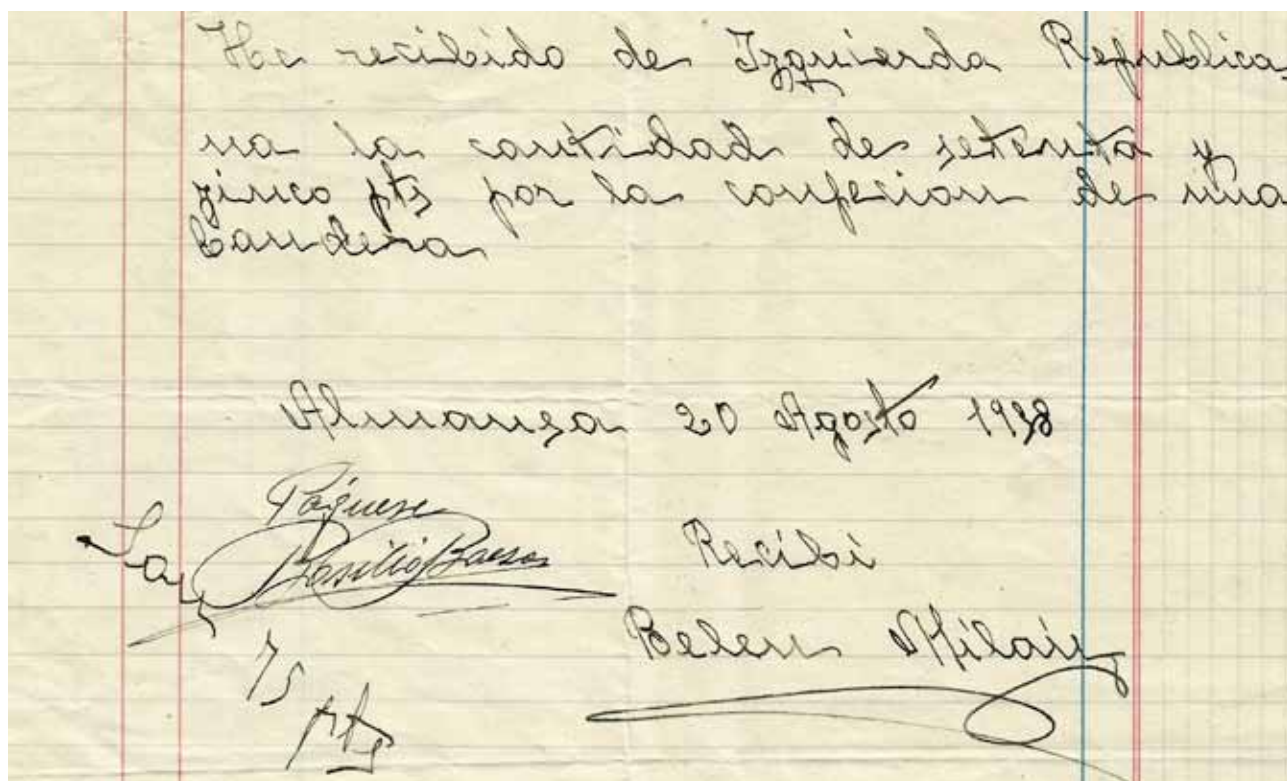 He recibido de Izquierda Republica
na la cantidad de setenta y
zinco pts por la confecion de una
bandera
Almansa 20 Agosto 1938
Páguese
Basilio Baeza
Recibi
Belen Milán
75
pts